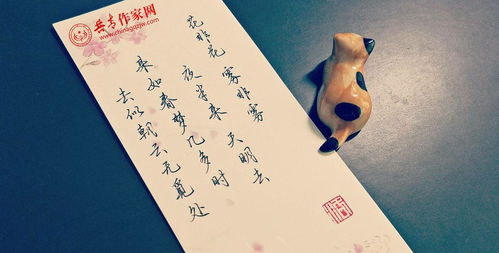 共青作家网
花非花 雾非雾
夜半来 天明去
来如春梦几多时
去似朝云无觅处